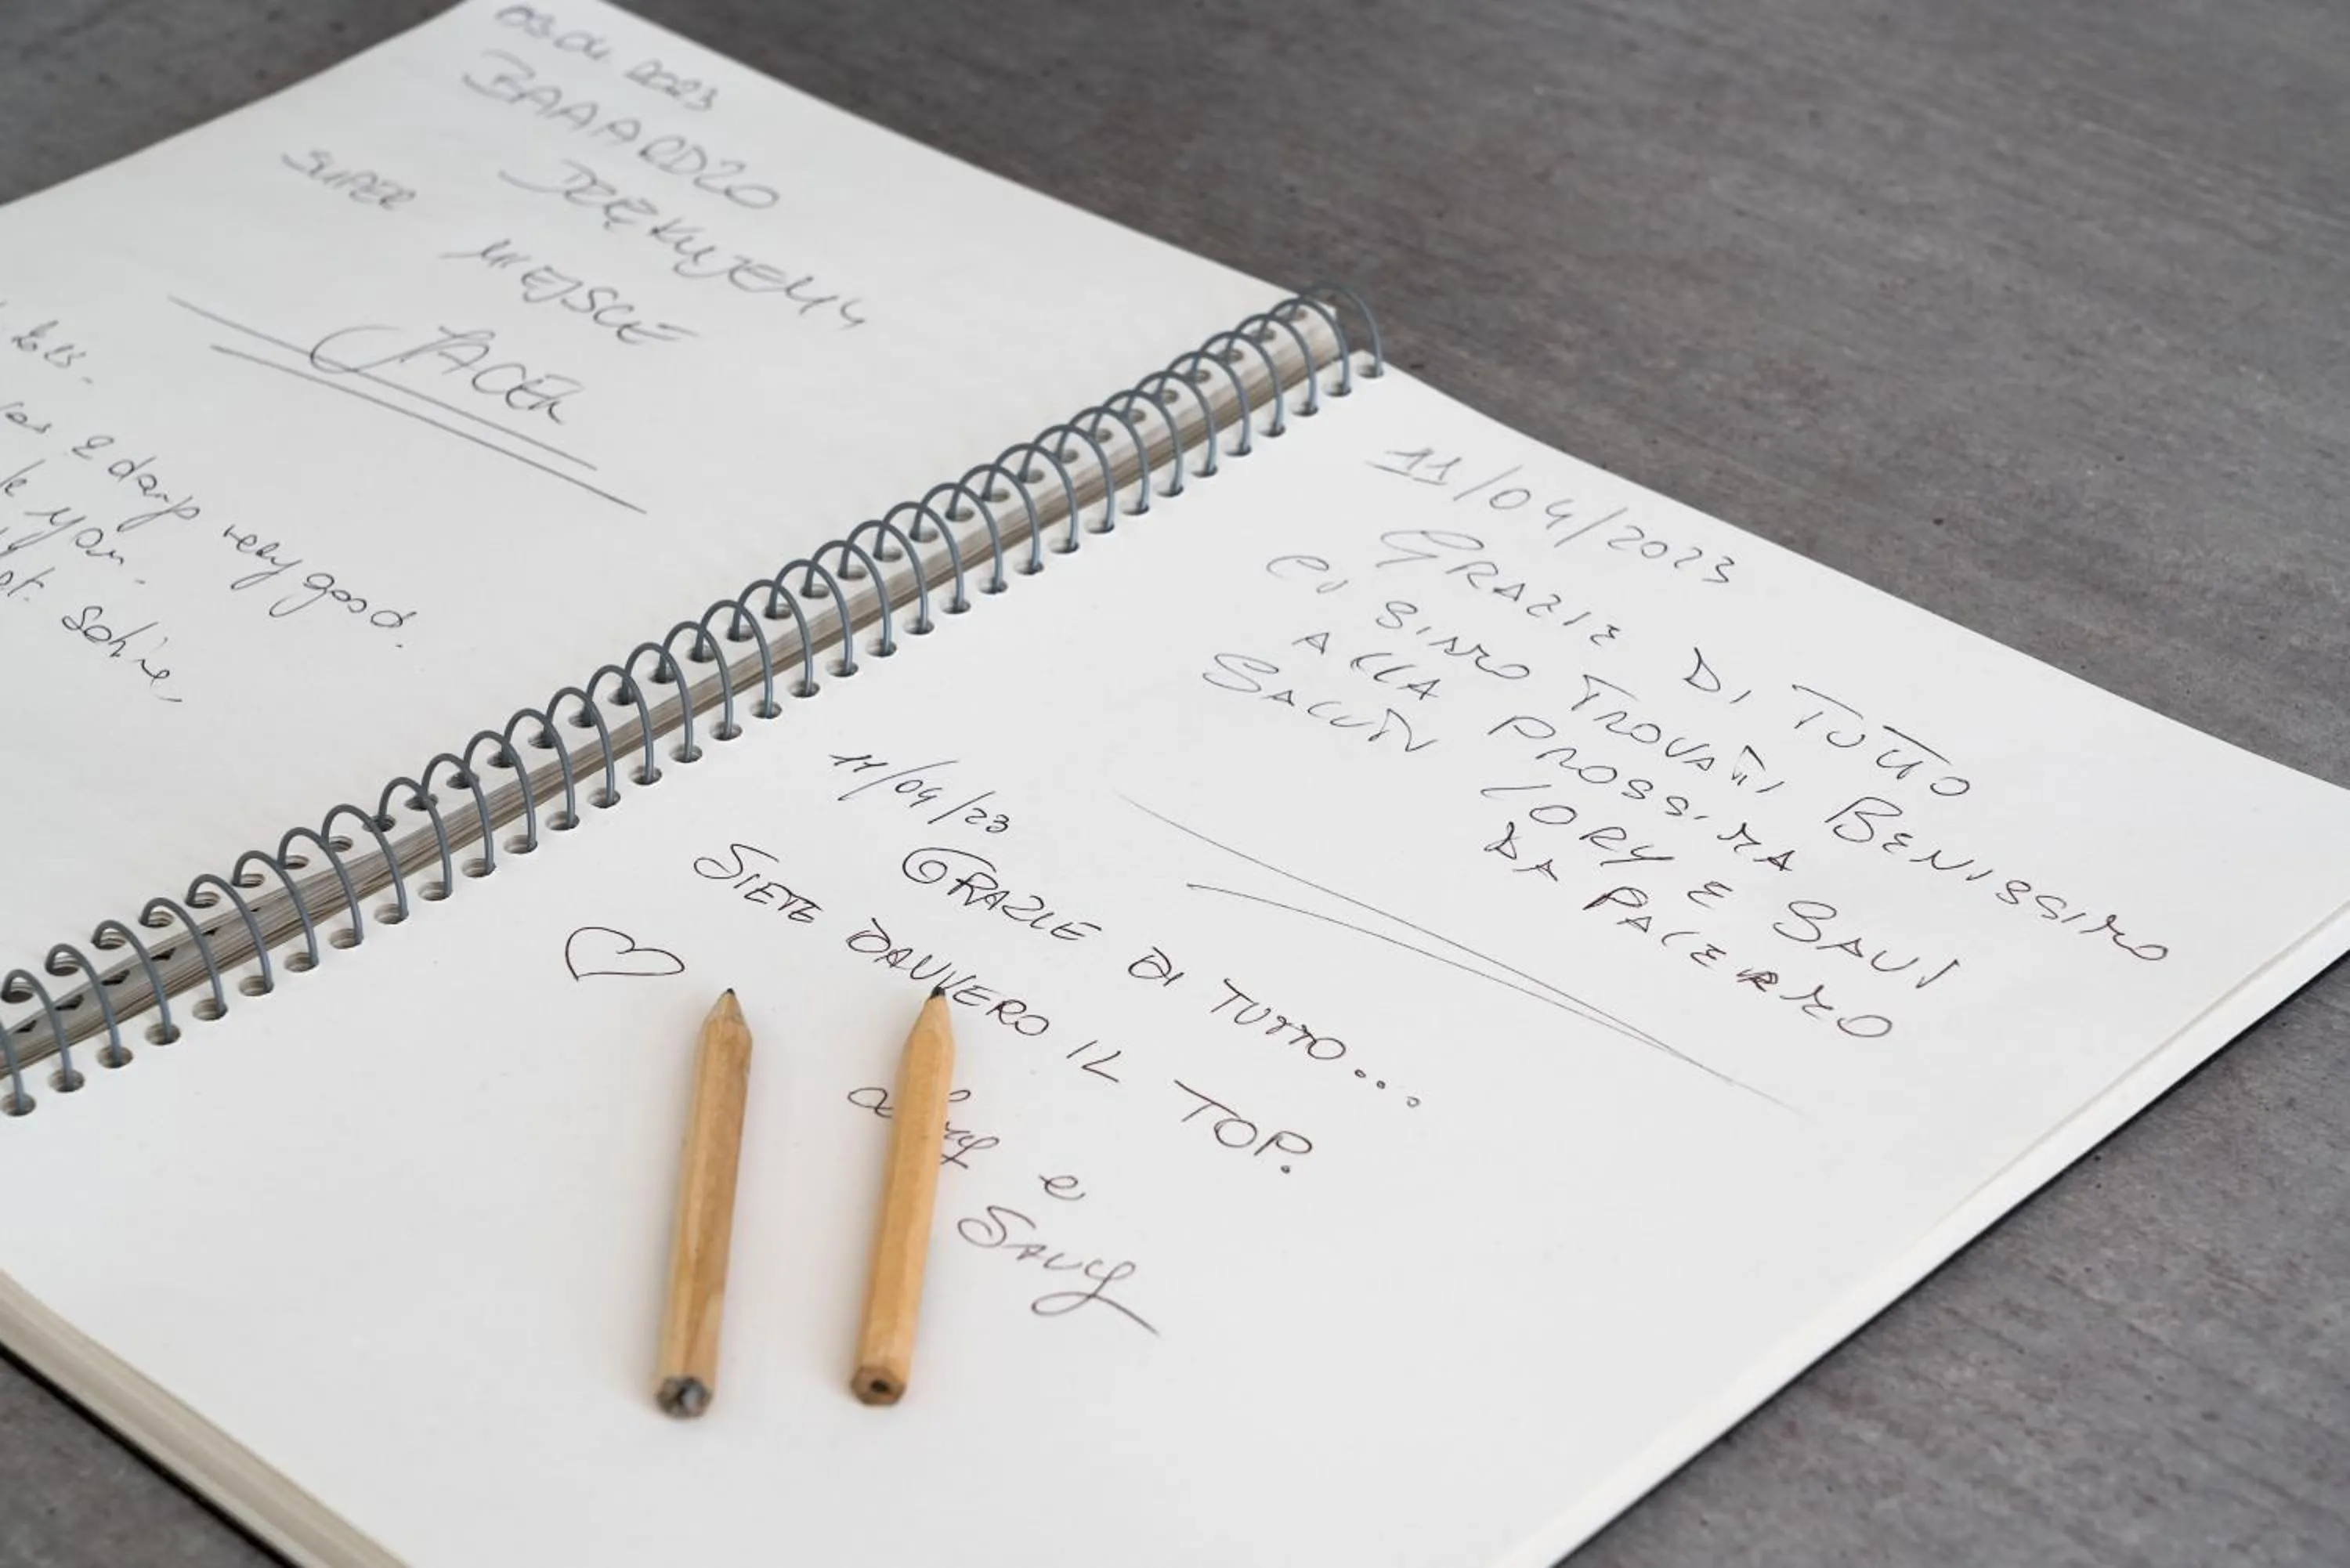 03.04.2023
BAAARDZO
DZIĘKUJEMY
SUPER MIEJSCE
JACEK
2 days very good.
you.
11/04/2023
GRAZIE DI TUTTO
CI SIAMO TROVATI BENISSIMO
ALLA PROSSIMA
SALUTI LORY E SAVI
DA PALERMO
11/04/23
GRAZIE DI TUTTO...
SIETE DAVVERO IL TOP.
e
SAVY